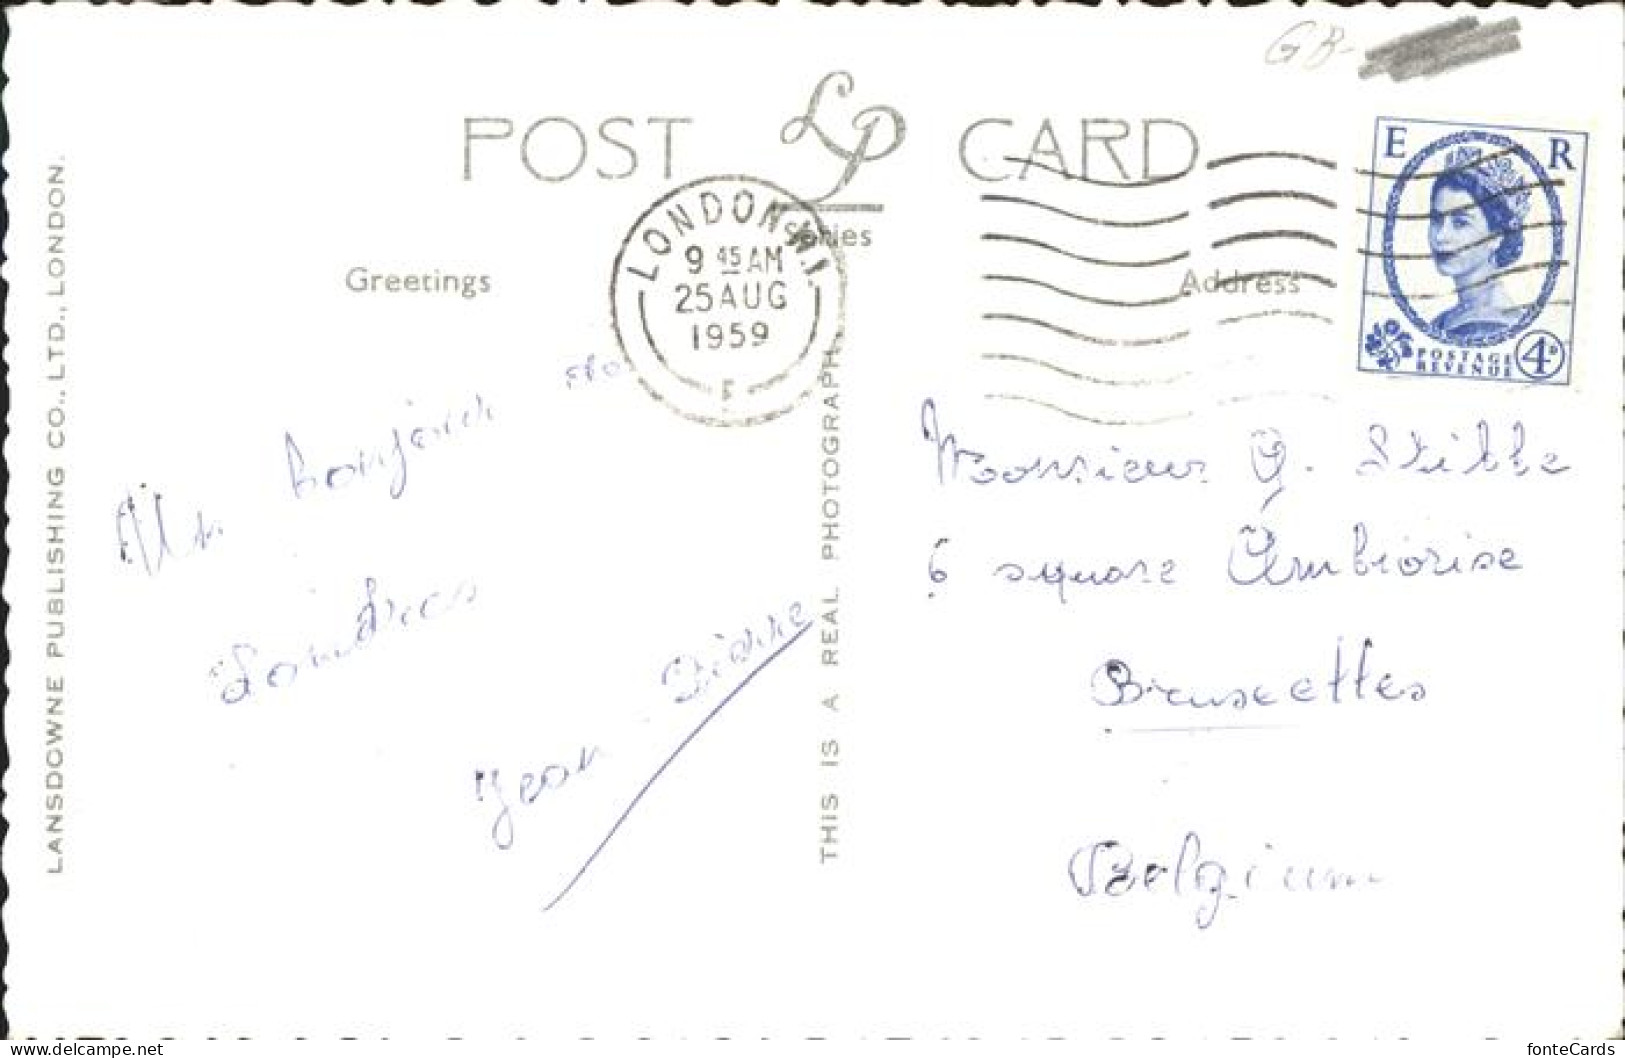 GB-
POST LP CARD
Series
Greetings
Address
LONDON.W.1.
9 45 AM
25 AUG
1959
F
E R
POSTAGE
REVENUE
4D
Un bonjour de
Londres
Jean-Pierre
Monsieur G.
6 square Ambiorise
Bruxelles
Belgium
LANSDOWNE PUBLISHING CO., LTD., LONDON.
THIS IS A REAL PHOTOGRAPH.
fonteCards